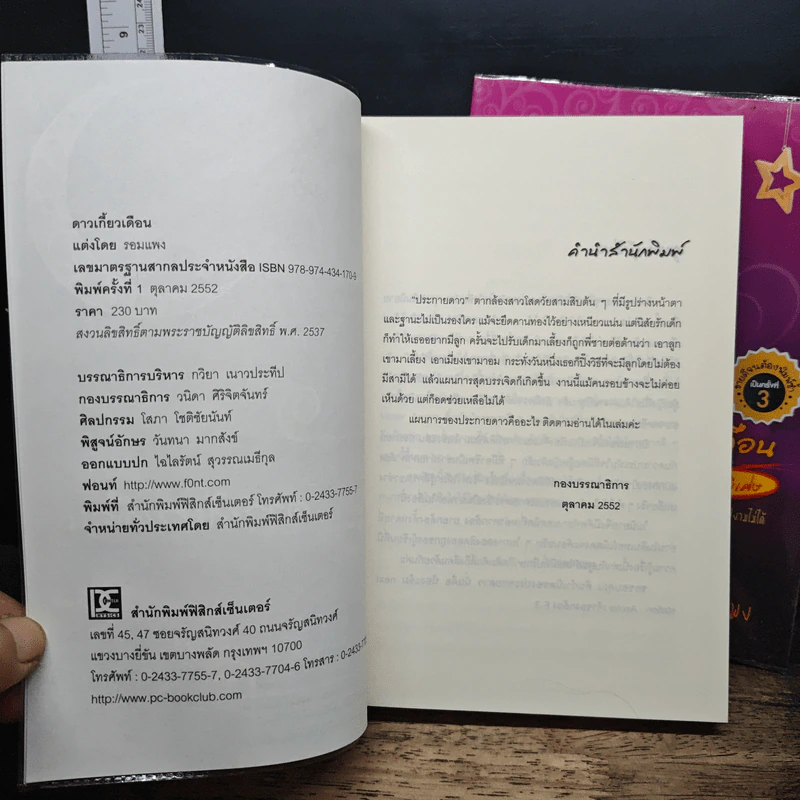 ดาวเกี้ยวเดือน
แต่งโดย รอมแพง
เลขมาตรฐานสากลประจำหนังสือ ISBN 978-974-434-170-9
พิมพ์ครั้งที่ 1 ตุลาคม 2552
ราคา 230 บาท
สงวนลิขสิทธิ์ตามพระราชบัญญัติลิขสิทธิ์ พ.ศ. 2537
บรรณาธิการบริหาร กวิยา เนาวประทีป
กองบรรณาธิการ วนิดา ศิริจิตจันทร์
ศิลปกรรม โสภา โชติชัยนันท์
พิสูจน์อักษร วันทนา มากสังข์
ออกแบบปก ไอไลรัตน์ สุวรรณเมธีกุล
ฟอนท์ http://www.f0nt.com
พิมพ์ที่ สำนักพิมพ์ฟิสิกส์เซ็นเตอร์ โทรศัพท์ : 0-2433-7755-7
จำหน่ายทั่วประเทศโดย สำนักพิมพ์ฟิสิกส์เซ็นเตอร์
สำนักพิมพ์ฟิสิกส์เซ็นเตอร์
เลขที่ 45, 47 ซอยจรัญสนิทวงศ์ 40 ถนนจรัญสนิทวงศ์
แขวงบางยี่ขัน เขตบางพลัด กรุงเทพฯ 10700
โทรศัพท์ : 0-2433-7755-7, 0-2433-7704-6 โทรสาร : 0-2433-
http://www.pc-bookclub.com
คำนำสำนักพิมพ์
"ประกายดาว" ตากล้องสาวโสดวัยสามสิบต้น ๆ ที่มีรูปร่างหน้าตา
และฐานะไม่เป็นรองใคร แม้จะยึดคานทองไว้อย่างเหนียวแน่น แต่นิสัยรักเด็ก
ก็ทำให้เธออยากมีลูก ครั้นจะไปรับเด็กมาเลี้ยงก็ถูกพี่ชายต่อต้านว่า เอาลูก
เขามาเลี้ยง เอาเมี่ยงเขามาอม กระทั่งวันหนึ่งเธอก็ปิ๊งวิธีที่จะมีลูกโดยไม่ต้อง
มีสามีได้ แล้วแผนการสุดบรรเจิดก็เกิดขึ้น งานนี้แม้คนรอบข้างจะไม่ค่อย
เห็นด้วย แต่ก็อดช่วยเหลือไม่ได้
แผนการของประกายดาวคืออะไร ติดตามอ่านได้ในเล่มค่ะ
กองบรรณาธิการ
ตุลาคม 2552
เป็นครั้งที่
3